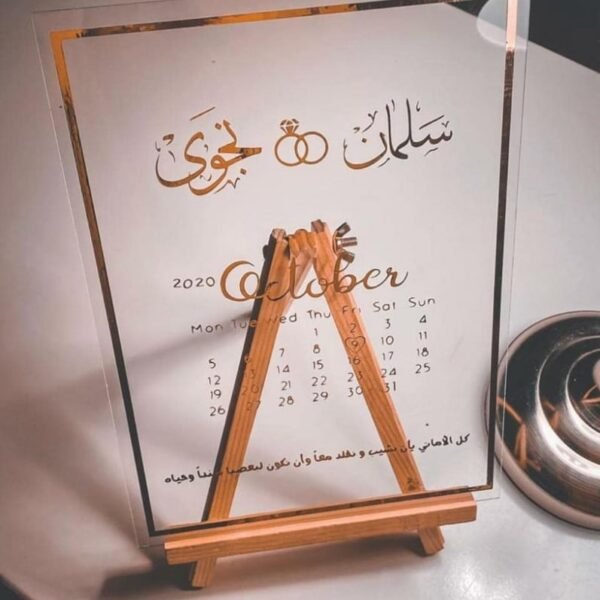 سَلمان نجوَى
2020 October
Mon Tue Wed Thu Fri Sat Sun
1 2 3 4
5 6 7 8 9 10 11
12 13 14 15 16 17 18
19 20 21 22 23 24 25
26 27 28 29 30 31
كل الأماني بأن نشيب و نخلد معاً وأن نكون لبعضنا سنداً وحياه